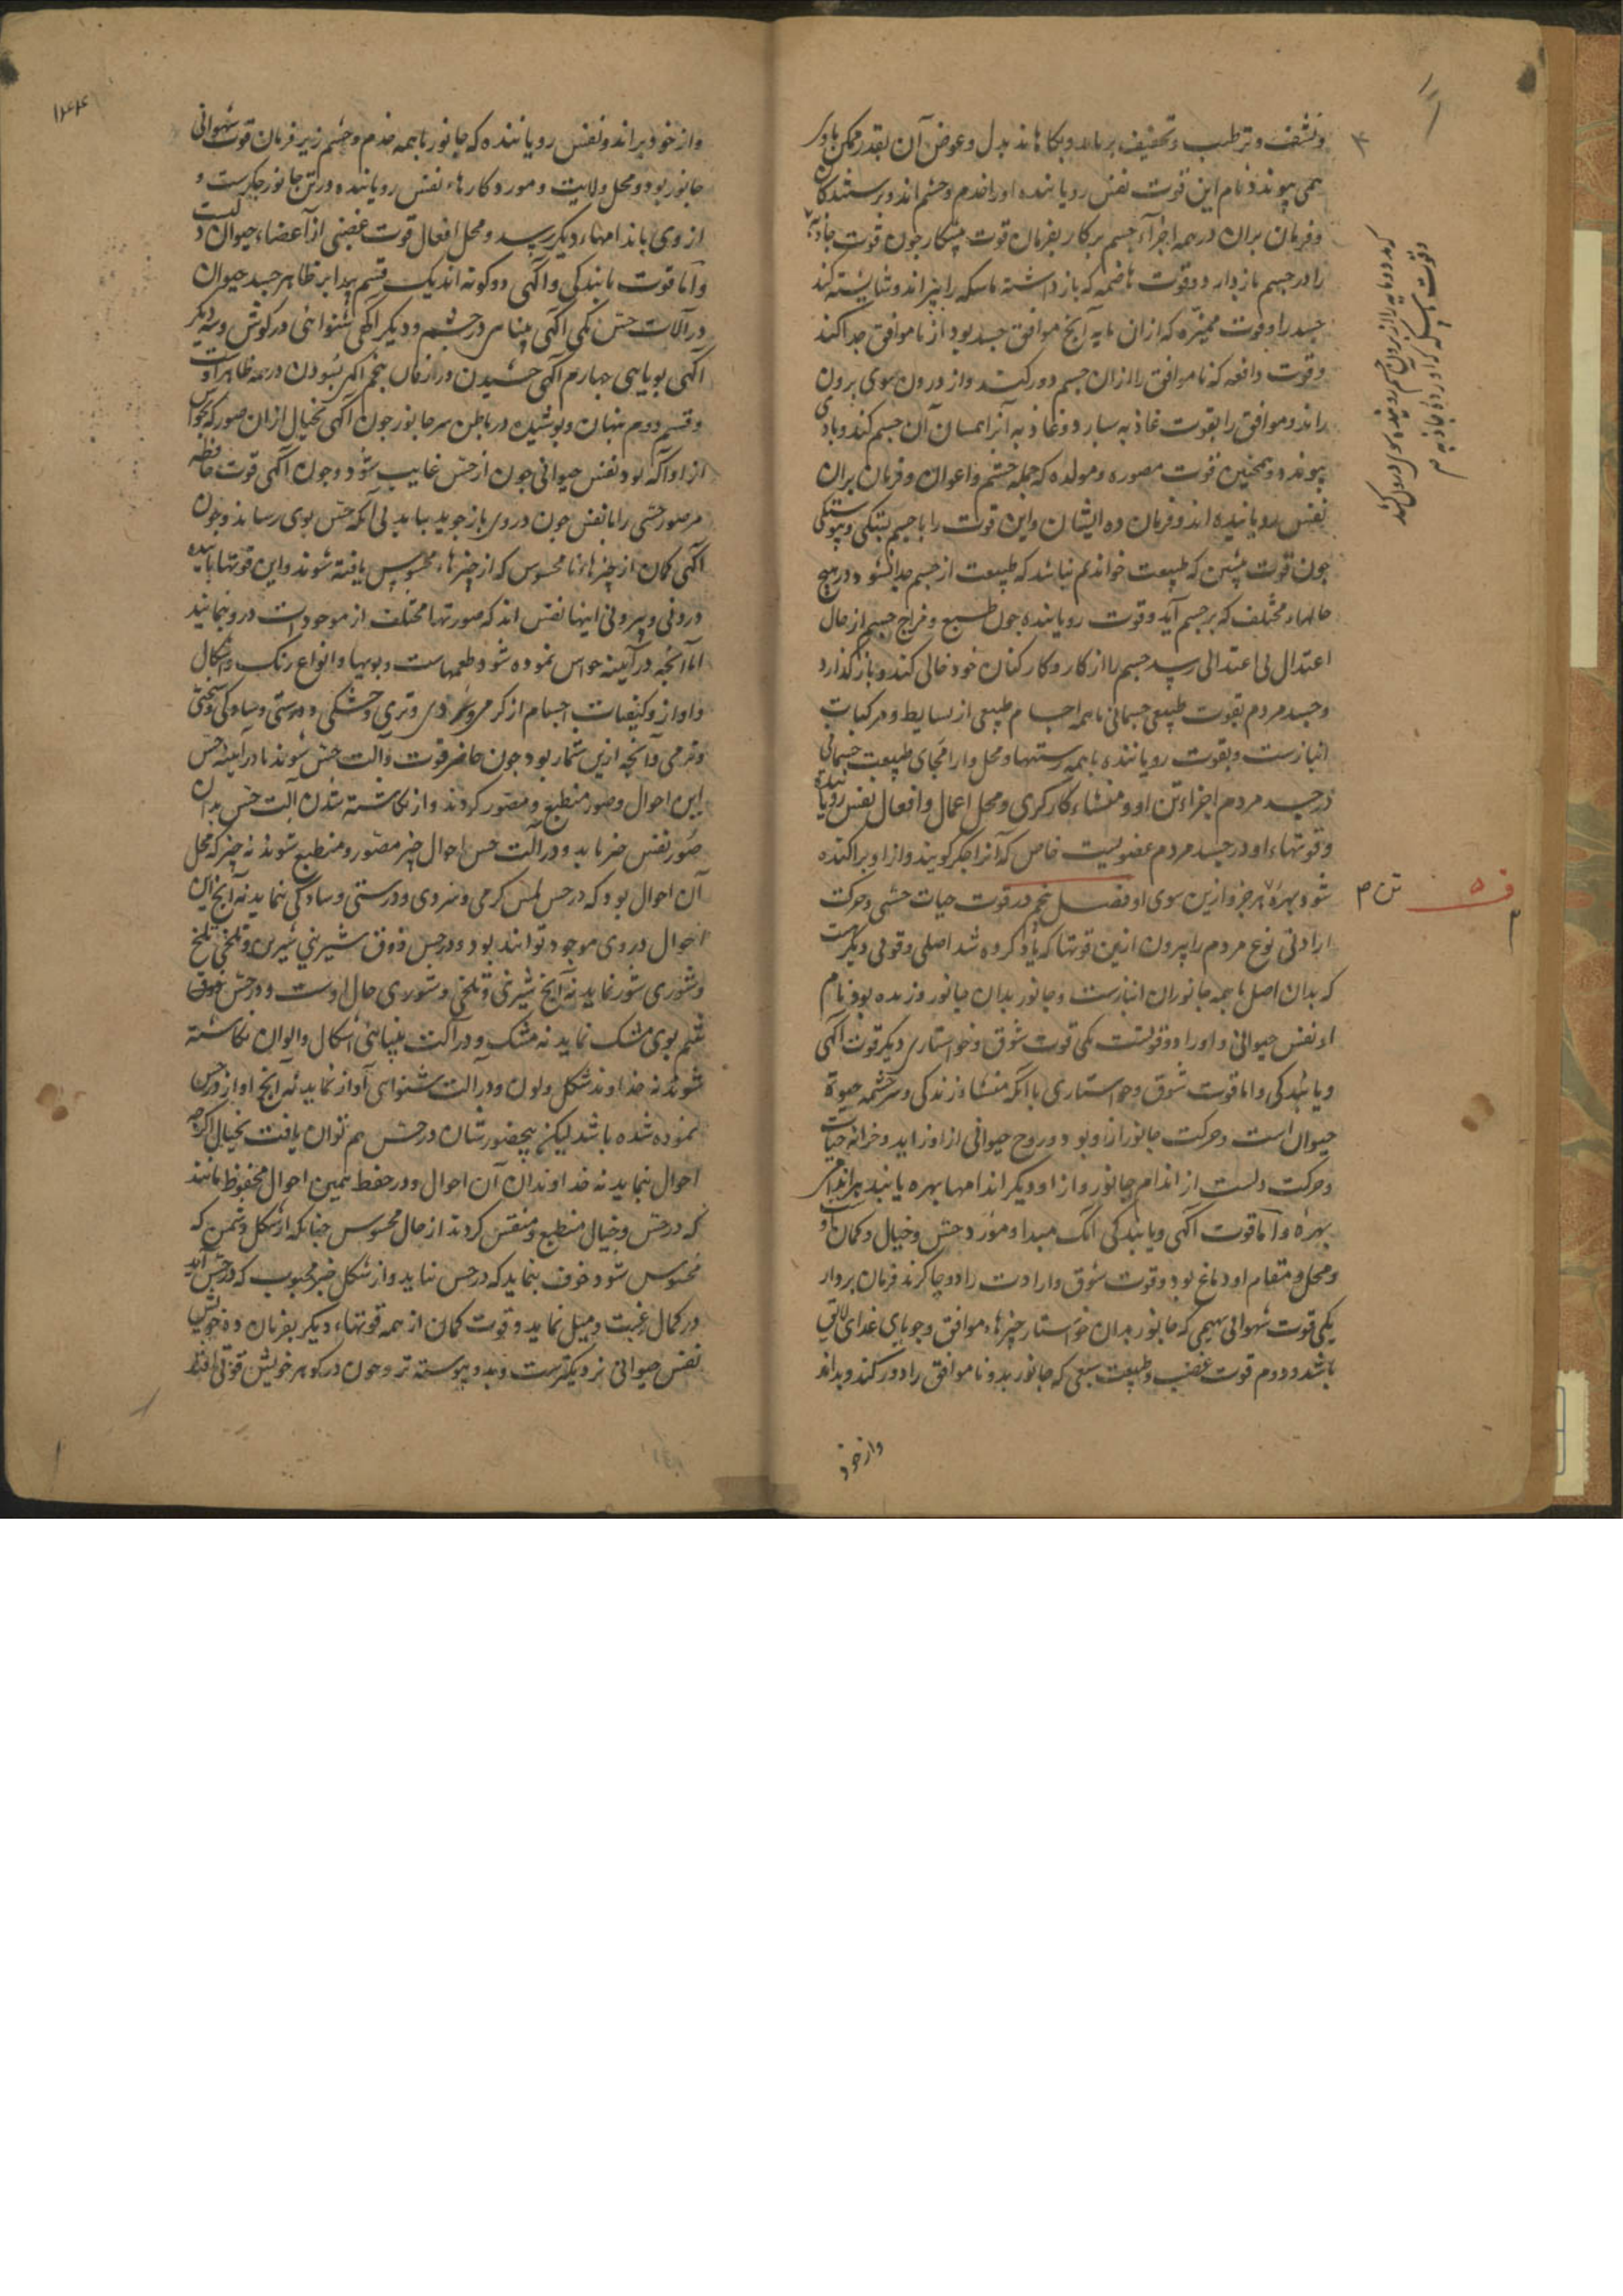 ونشف وترطیب وتخفیف برساند وبکاهاند بدل وعوض آن بقدر ممکن باو
همی پیوندد ونام این قوت نفس رویاننده اورا خدم وحشم اند وپرستندکان
وفرمان بران در همه اجزاء جسم برکار بفرمان قوت پیشکار چون قوت جاذبه
را در جسم بازدارد وقوت هاضمه که بازداشته ماسکه را بپزاند وشایسته کند
جسد را وقوت ممیزه که از ان مایه آنچ موافق جسد بود از ناموافق جدا کند
وقوت دافعه که ناموافق را از ان جسم دور کند واز درون سوی برون
راند وموافق را بقوت غاذیه سپارد وغاذیه آنرا همسان آن جسم کند وبا وی
پیوندد وهمچنین قوت مصوره ومولده که جمله حشم واعوان وفرمان بران
نفس روینده اند وفرمان ده ایشان واین قوت را با جسم بستکی وپیوستکی
چون قوت پیشین که طبیعت خواندیم نباشد که طبیعت از جسم جدا نشود در هیچ
حالهاء مختلف که بر جسم آید وقوت رویاننده چون طبع ومزاج جسم از حال
اعتدال بی اعتدالی رسد جسم را از کار وکارکنان خود خالی کند وبازگذارد
وجسد مردم بقوت طبیعی جسمانی با همه اجسام طبیعی از بسایط ومرکبات
انبازست وبقوت رویاننده با همه رستنیها ومحل وارامجای طبیعت جسمانی
در جسد مردم اجزاء تن او ومنشاء کارکری ومحل اعمال وافعال نفس رویاننده
وقوتهاء او در جسد مردم عضویست خاص که آنرا جکر کویند واز او پراکنده
شود بهره هر جزو ازین سوی او فصل پنجم در قوت حیات حسی وحرکت
ارادتی نوع مردم را بیرون ازین قوتها که یاد کرده شد اصلی وقوتی دیکر هست
که بدان اصل با همه جانوران انبازست وجانور بدان جانور وزنده بود ونام
او نفس حیوانی واورا دو قوتست یکی قوت شوق وخواستاری دیکر قوت آکهی
ویابندکی واما قوت شوق وخواستاری با آنکه منشاء زندکی وسرچشمه حیوة
حیوان است وحرکت جانور ازو بود وروح حیوانی از او زاید وخزانه حیات
وحرکت دلست از اندام جانور واز او دیکر اندامها بهره یابند هر اندامی
بهره واما قوت آکهی ویابندکی آنک مبداء ومورد حس وخیال وکمان اوست
ومحل ومقام او دماغ بود وقوت شوق وارادت را دو چاکرند فرمان بردار
یکی قوت شهوانی بهیمی که جانور بدان خواستار چیزهاء موافق وجویای غذای لایق
باشد ودوم قوت غضب وطبیعت سبعی که جانور بدو ناموافق را دور کند وبراند
واز خود
ف ۵
واز خود براند ونفس رویاننده که جانور با همه خدم وحشم زیر فرمان قوت شهوانی
جانور بود ومحل ولایت ومورد کارهاء نفس رویاننده در تن جانور جکرست و
از وی باندامهاء دیکر رسد ومحل افعال قوت غضبی از اعضاء حیوان دلست
واما قوت یابندکی وآکهی دو کونه اند یک قسم پیدا بر ظاهر جسد حیوان
در آلات حس یکی آکهی بینایی در چشم ودیکر آکهی شنوائی در کوش وسه دیکر
آکهی بویایی چهارم آکهی چشیدن در زفان پنجم آکهی بسودن در همه ظاهر او
وقسم دوم پنهان وپوشیده در باطن سر جانور چون آکهی تخیل از ان صور که بحواس
از او آکه بود نفس حیوانی چون از حس غایب شود وچون آکهی قوت حافظه
مر صور حسی را تا نفس چون در وی بازجوید بیابد بی آنکه حس بوی رساند وچون
آکهی کمان از چیزهاء نامحسوس که از چیزهاء محسوس یافته شوند واین قوتها یابنده
درونی وبیرونی اینها نفس اند که صورتها مختلف از موجودات در وبنمایند
اما آنچه در آیینه حواس نموده شود طعمهاست وبویها وانواع رنک واشکال
واواز وکیفیات اجسام از کرمی وسردی وتری وخشکی ودرشتی وسادکی وسختی
ونرمی وآنچه ازین شمار بود چون حاضر قوت وآلت حس شوند تا در آیینه حس
این احوال وصور منطبع ومصور کردند واز نکاشته شدن آلت حس بدان
صور نفس خبر یابد ودر آلت حس احوال چیز مصور ومنطبع شوند نه چیز که محل
آن احوال بود که در حس لمس کرمی وسردی ودرشتی وسادکی نماید نه آنچ این
احوال در وی موجود توانند بود ودر حس ذوق شیرینی شیرین وتلخی تلخ
وشوری شور نماید نه آنچ شیرینی وتلخی وشوری حال اوست ودر حس
شم بوی مشک نماید نه مشک ودر آلت بینائی اشکال والوان نکاشته
شوند نه خداوند شکل ولون ودر آلت شنوایی آواز نماید نه آنچ اواز در حس
نموده شده باشد لیکن بیحضورشان در حس هم توان یافت بخیال اکرچه
احوال بنماید نه خداوندان آن احوال ودر حفظ همین احوال محفوظ بمانند
که در حس وخیال منطبع ومنقش کردند از حال محسوس چنانکه از شکل دشمن که
محسوس شود خوف بنماید که در حس نیاید واز شکل چیز محبوب که در حس آید
در کمال رغبت ومیل نماید وقوت کمان از همه قوتهاء دیکر بفرمان ده خویش
نفس حیوانی نزدیکترست وبدو پیوسته تر وچون در کوهر خویش قوتی یافتند